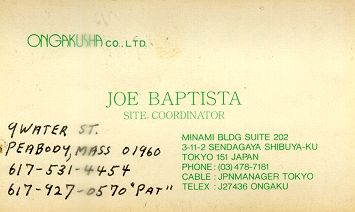 ONGAKUSHA CO., LTD.
JOE BAPTISTA
SITE COORDINATOR
9 WATER ST.
PEABODY, MASS 01960
617-531-4454
617-927-0570 "PAT"
MINAMI BLDG SUITE 202
3-11-2 SENDAGAYA SHIBUYA-KU
TOKYO 151 JAPAN
PHONE: (03) 478-7181
CABLE : JPNMANAGER TOKYO
TELEX : J27436 ONGAKU